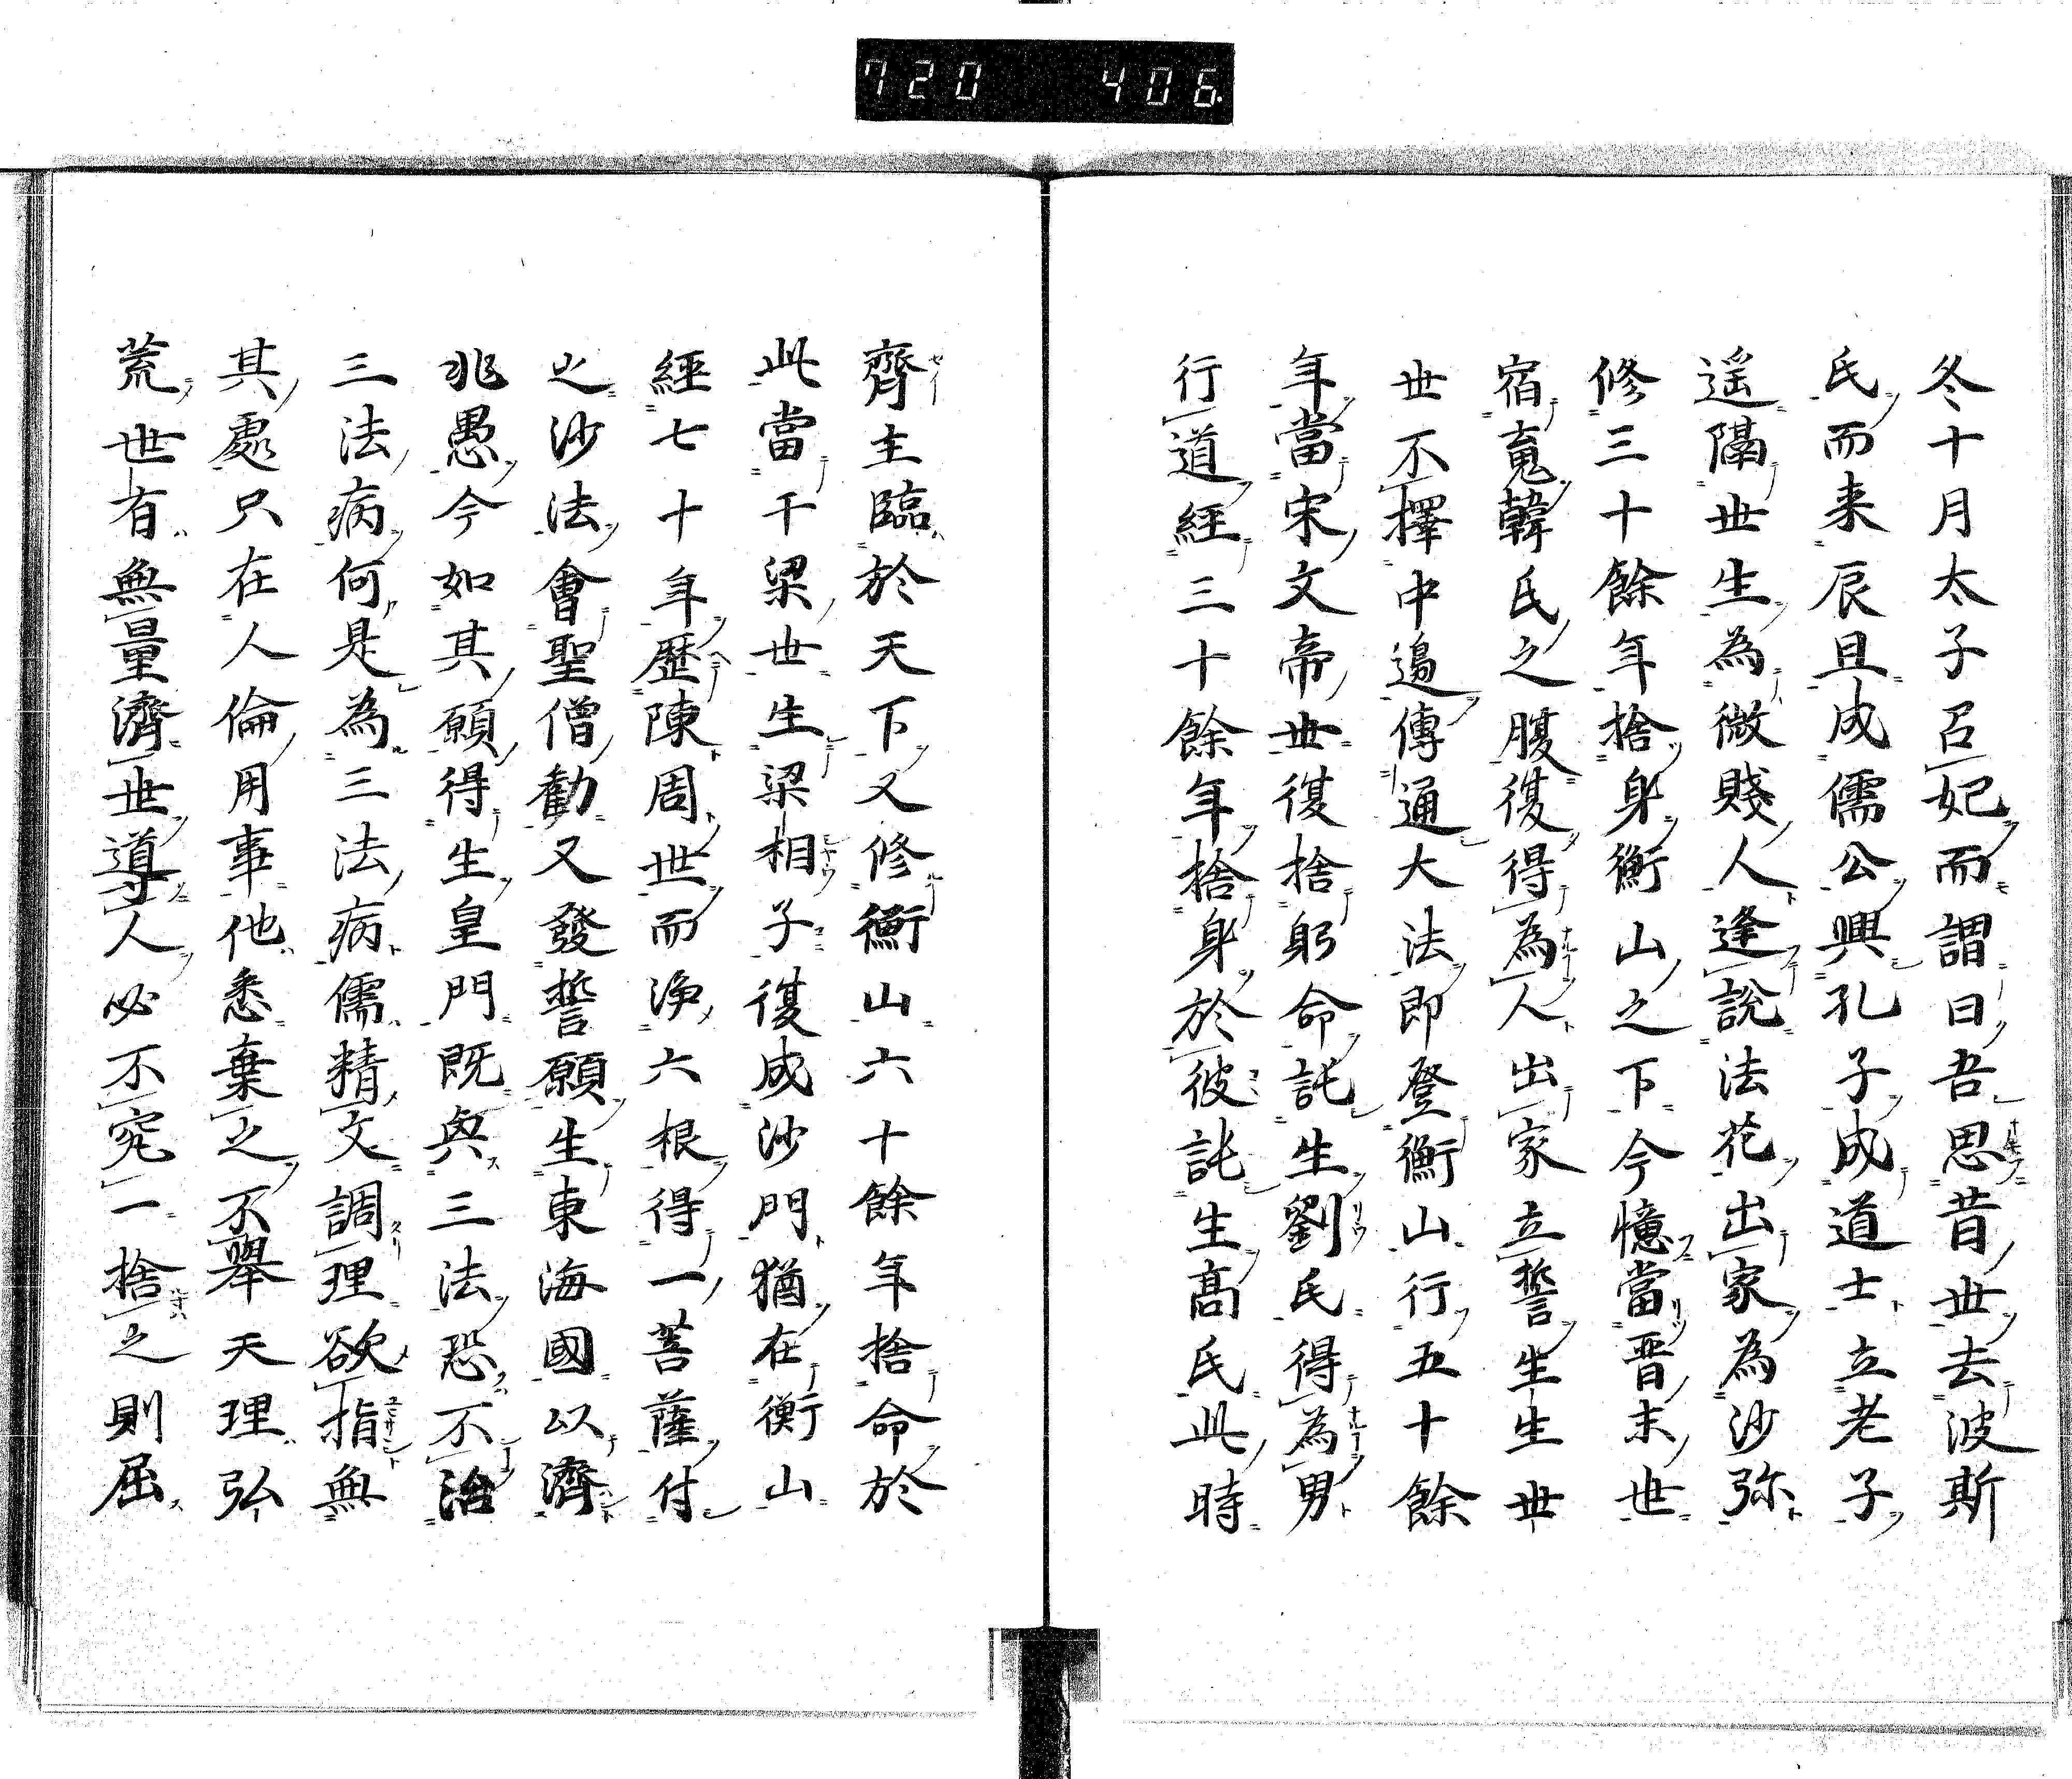 720 406.
冬十月太子召妃而謂曰吾思昔世去波斯
氏而来辰旦成儒公興孔子成道士立老子
遥隔世生為微賤人逢說法花出家為沙弥
修三十餘年捨身衡山之下今憶當晋末世
宿寬韓氏之腹復得為人出家立誓生生世
世不擇中邊傳通大法即登衡山行五十餘
年當宋文帝世復捨躬命託生劉氏得為男
行道經三十餘年捨身於彼託生髙氏此時
齊主臨於天下又修衡山六十餘年捨命於
此當干梁世生梁相子復成沙門猶在衡山
經七十年歷陳周世而浄六根得一菩薩付
之沙法會聖僧勸又發誓願生東海國以濟
兆愚今如其願得生皇門既與三法恐不治
三法病何是為三法病儒精文調理欲指無
其處只在人倫用事他悉棄之不舉天理弘
荒世有無量濟世導人必不究一捨之則屈